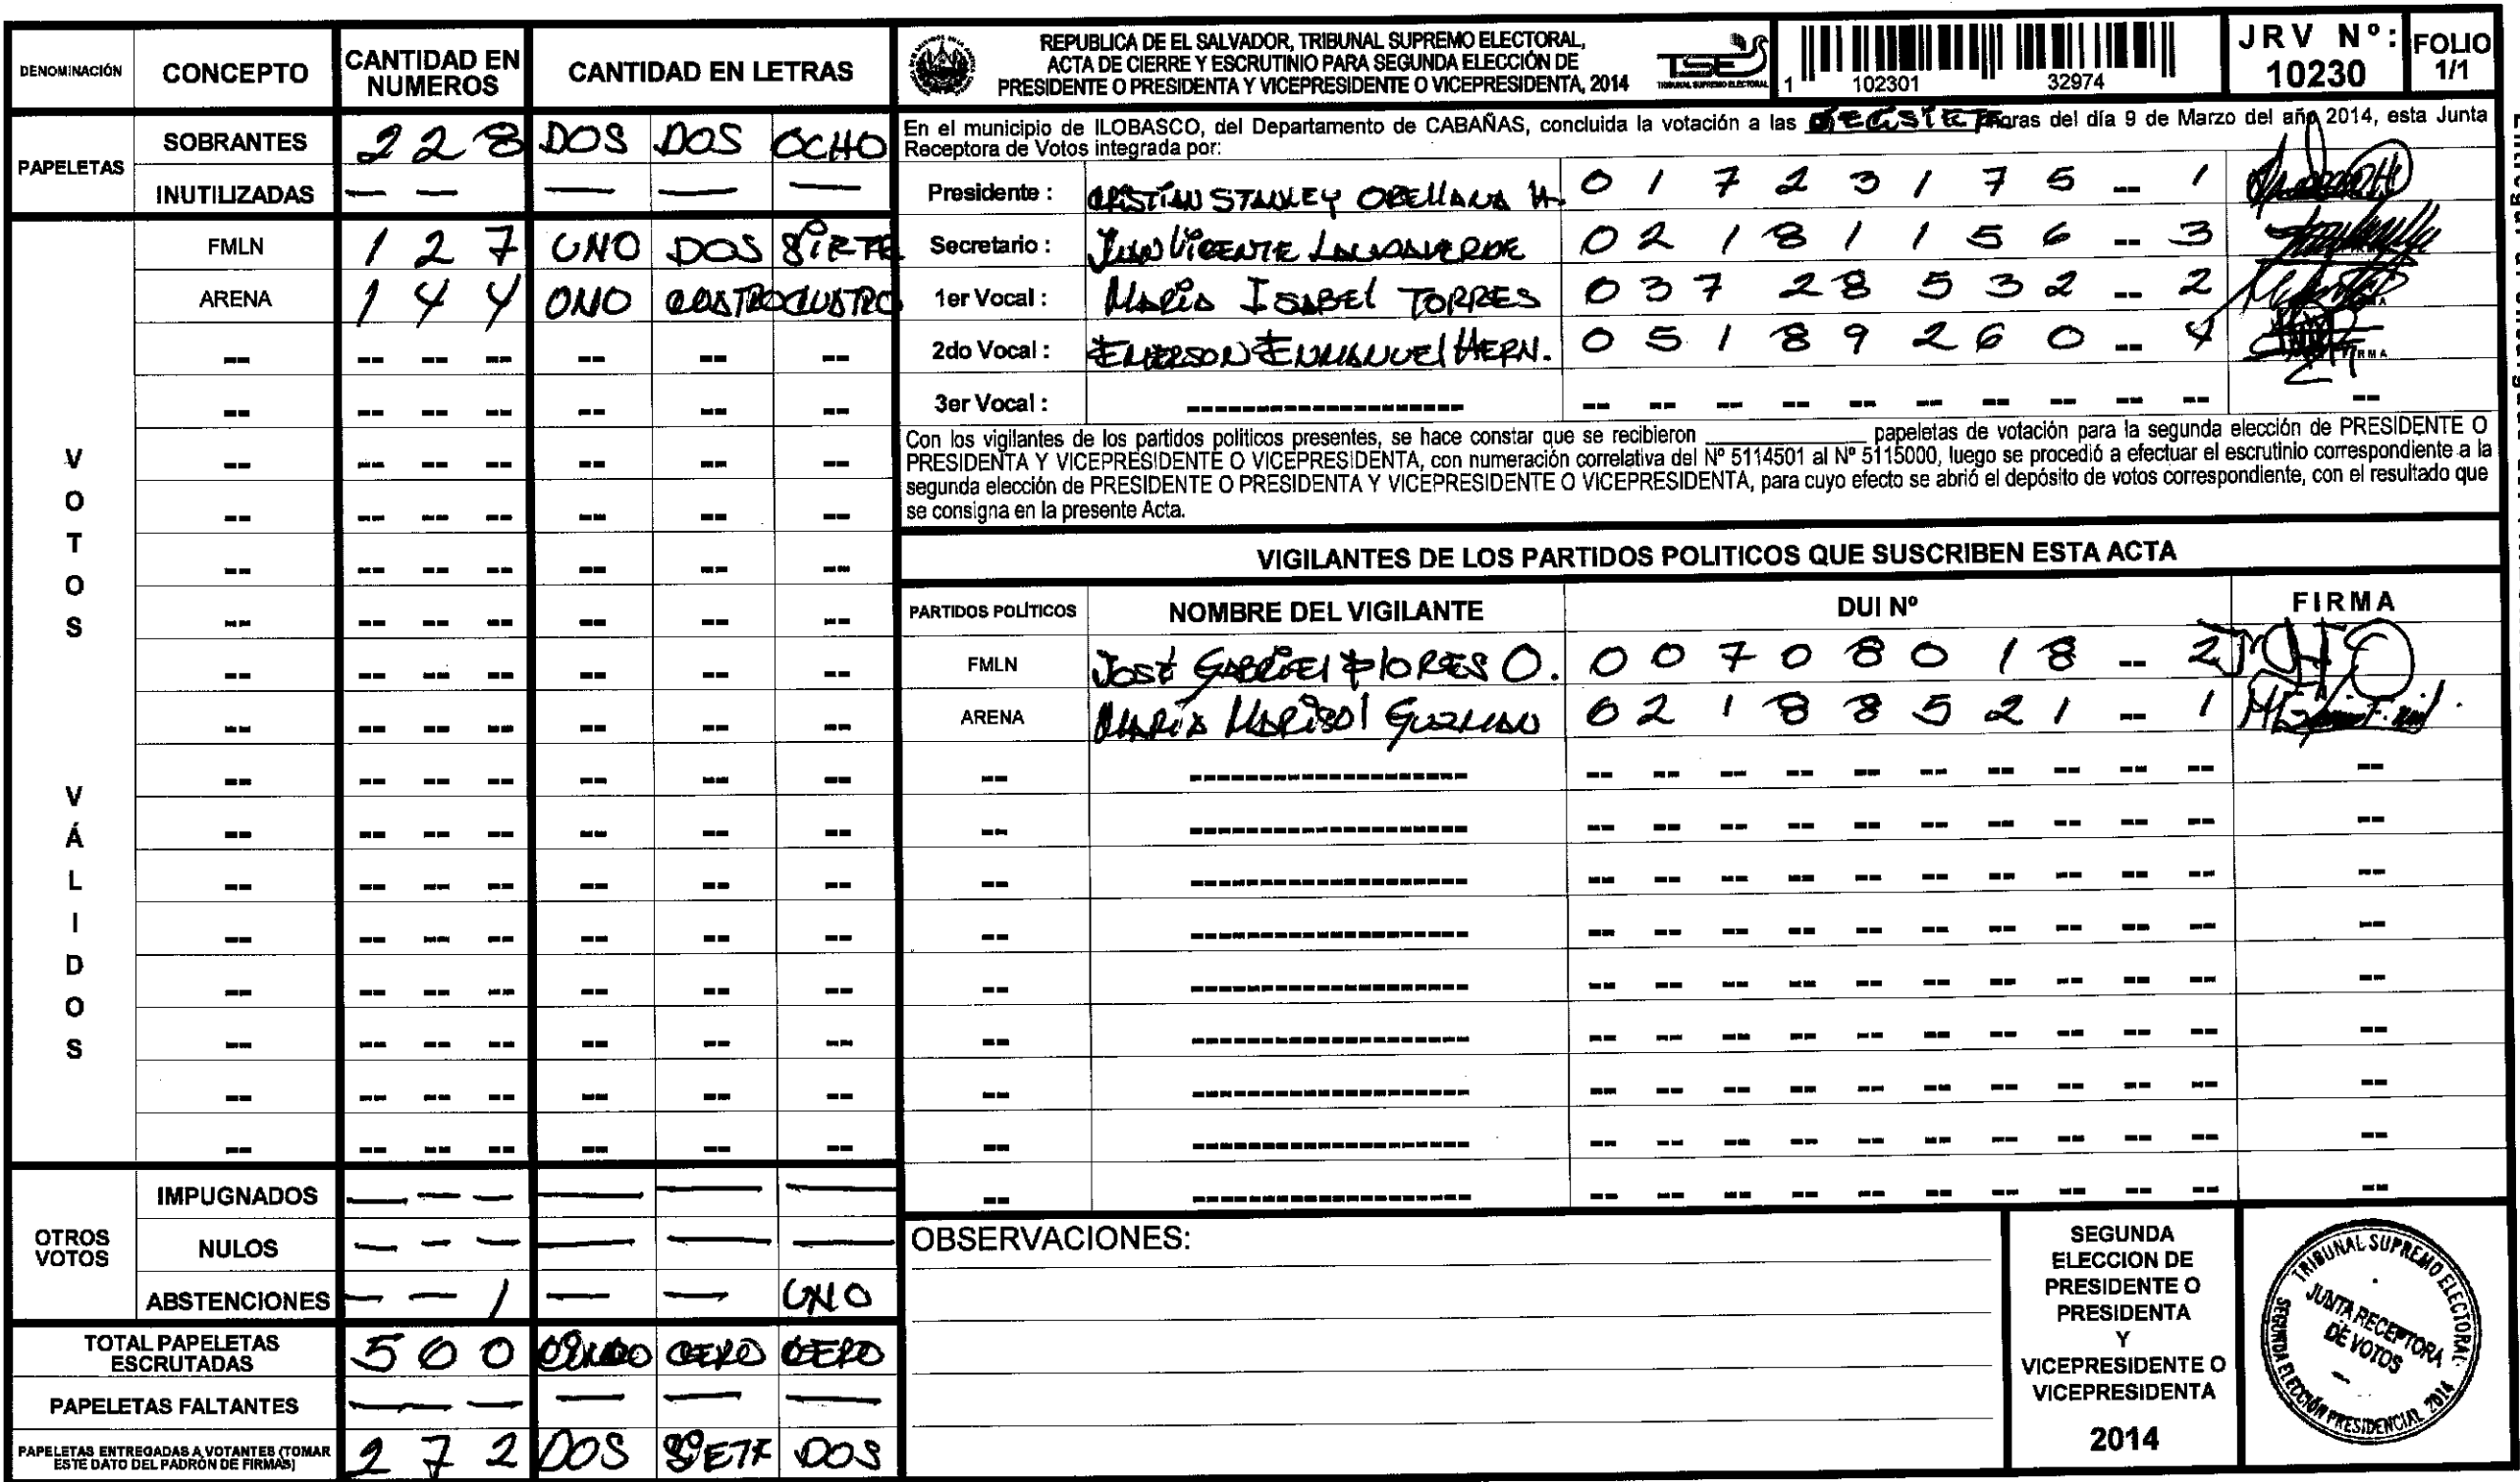 DENOMINACIÓN CONCEPTO CANTIDAD EN NUMEROS CANTIDAD EN LETRAS
PAPELETAS
SOBRANTES 2 2 8 DOS DOS OCHO
INUTILIZADAS — — — — —
VOTOS VÁLIDOS
FMLN 1 2 7 UNO DOS SIETE
ARENA 1 4 4 UNO CUATRO CUATRO
OTROS VOTOS
IMPUGNADOS — — — — — —
NULOS — — — — — —
ABSTENCIONES — — 1 — — UNO
TOTAL PAPELETAS ESCRUTADAS 5 0 0 CINCO CERO CERO
PAPELETAS FALTANTES — — — — — —
PAPELETAS ENTREGADAS A VOTANTES (TOMAR ESTE DATO DEL PADRÓN DE FIRMAS) 2 7 2 DOS SIETE DOS
REPUBLICA DE EL SALVADOR, TRIBUNAL SUPREMO ELECTORAL,
ACTA DE CIERRE Y ESCRUTINIO PARA SEGUNDA ELECCIÓN DE
PRESIDENTE O PRESIDENTA Y VICEPRESIDENTE O VICEPRESIDENTA, 2014
TSE
TRIBUNAL SUPREMO ELECTORAL
1 102301 32974
JRV Nº: 10230
FOLIO 1/1
En el municipio de ILOBASCO, del Departamento de CABAÑAS, concluida la votación a las horas del día 9 de Marzo del año 2014, esta Junta
Receptora de Votos integrada por:
Presidente : CRISTIAN STANLEY ORELLANA H. 0 1 7 2 3 1 7 5 -- 1
Secretario : JUAN VICENTE LANDAVERDE 0 2 1 8 1 1 5 6 -- 3
1er Vocal : MARIA ISABEL TORRES 0 3 7 2 8 5 3 2 -- 2
2do Vocal : EMERSON ENMANUEL HERN. 0 5 1 8 9 2 6 0 -- 4
3er Vocal :
Con los vigilantes de los partidos politicos presentes, se hace constar que se recibieron ____________ papeletas de votación para la segunda elección de PRESIDENTE O
PRESIDENTA Y VICEPRESIDENTE O VICEPRESIDENTA, con numeración correlativa del Nº 5114501 al Nº 5115000, luego se procedió a efectuar el escrutinio correspondiente a la
segunda elección de PRESIDENTE O PRESIDENTA Y VICEPRESIDENTE O VICEPRESIDENTA, para cuyo efecto se abrió el depósito de votos correspondiente, con el resultado que
se consigna en la presente Acta.
VIGILANTES DE LOS PARTIDOS POLITICOS QUE SUSCRIBEN ESTA ACTA
PARTIDOS POLÍTICOS NOMBRE DEL VIGILANTE DUI Nº FIRMA
FMLN JOSÉ GABRIEL FLORES O. 0 0 7 0 8 0 1 8 -- 2
ARENA MARIA MARISOL GUZMAN 0 2 1 8 8 5 2 1 -- 1
OBSERVACIONES:
SEGUNDA
ELECCION DE
PRESIDENTE O
PRESIDENTA
Y
VICEPRESIDENTE O
VICEPRESIDENTA
2014
TRIBUNAL SUPREMO ELECTORAL
JUNTA RECEPTORA
DE VOTOS
SEGUNDA ELECCIÓN PRESIDENCIAL 2014